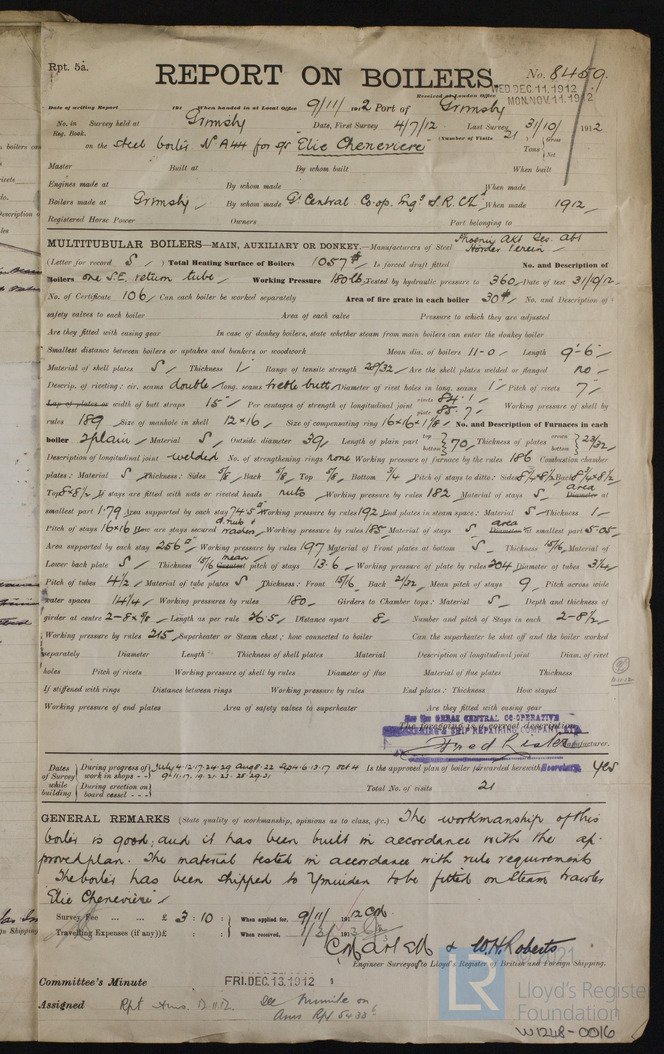 Rpt. 5a.
REPORT ON BOILERS.
No. 8459.
Received at London Office WED. DEC. 11. 1912
MON. NOV. 11. 1912
Date of writing Report 191 When handed in at Local Office 9/11/ 1912 Port of Grimsby
No. in Reg. Book. Survey held at Grimsby Date, First Survey 4/7/12 Last Survey 31/10/ 1912
(Number of Visits 21) Gross Tons Net
on the Steel boiler No A44 for s/s "Elie Cheneviere"
Master Built at By whom built When built
Engines made at By whom made When made
Boilers made at Grimsby By whom made Gt Central Co-op. Engs & S.R. Co Ld When made 1912
Registered Horse Power Owners Port belonging to
MULTITUBULAR BOILERS—MAIN, AUXILIARY OR DONKEY.—Manufacturers of Steel Phoenix Akt Ges. Abt Hörder Verein
(Letter for record S) Total Heating Surface of Boilers 1057 Is forced draft fitted No. and Description of
Boilers one S.E. return tube Working Pressure 180 lb Tested by hydraulic pressure to 360 Date of test 31/10/12
No. of Certificate 106 Can each boiler be worked separately Area of fire grate in each boiler 30 No. and Description of
safety valves to each boiler Area of each valve Pressure to which they are adjusted
Are they fitted with easing gear In case of donkey boilers, state whether steam from main boilers can enter the donkey boiler
Smallest distance between boilers or uptakes and bunkers or woodwork Mean dia. of boilers 11-0 Length 9'-6"
Material of shell plates S Thickness 1" Range of tensile strength 28/32 Are the shell plates welded or flanged no
Descrip. of riveting: cir. seams double long. seams treble butt Diameter of rivet holes in long. seams 1" Pitch of rivets 7"
Lap of plates or width of butt straps 15" Per centages of strength of longitudinal joint rivets 84.1 plate 85.7 Working pressure of shell by
rules 189 Size of manhole in shell 12 x 16 Size of compensating ring 16x16x1 1/8 No. and Description of Furnaces in each
boiler 2 plain Material S Outside diameter 39 Length of plain part top bottom 70 Thickness of plates crown bottom 23/32
Description of longitudinal joint welded No. of strengthening rings none Working pressure of furnace by the rules 186 Combustion chamber
plates: Material S Thickness: Sides 5/8 Back 5/8 Top 5/8 Bottom 3/4 Pitch of stays to ditto: Sides 8 1/4x8 1/2 Back 8 1/4x8 1/2
Top 8x8 1/2 If stays are fitted with nuts or riveted heads nuts Working pressure by rules 182 Material of stays S area Diameter at
smallest part 1.79 Area supported by each stay 74.5 Working pressure by rules 192 End plates in steam space: Material S Thickness 1
Pitch of stays 16x16 How are stays secured d. nuts + washers Working pressure by rules 185 Material of stays S area Diameter at smallest part 5.05
Area supported by each stay 256 Working pressure by rules 197 Material of Front plates at bottom S Thickness 15/16 Material of
Lower back plate S Thickness 15/16 mean Greatest pitch of stays 13.6 Working pressure of plate by rules 204 Diameter of tubes 3 1/4
Pitch of tubes 4 1/2 Material of tube plates S Thickness: Front 15/16 Back 21/32 Mean pitch of stays 9 Pitch across wide
water spaces 14 1/4 Working pressures by rules 180 Girders to Chamber tops: Material S Depth and thickness of
girder at centre 2-8x 7/8 Length as per rule 26.5 Distance apart 8 Number and pitch of Stays in each 2-8 1/2
Working pressure by rules 215 Superheater or Steam chest; how connected to boiler Can the superheater be shut off and the boiler worked
separately Diameter Length Thickness of shell plates Material Description of longitudinal joint Diam. of rivet
holes Pitch of rivets Working pressure of shell by rules Diameter of flue Material of flue plates Thickness
If stiffened with rings Distance between rings Working pressure by rules End plates: Thickness How stayed
Working pressure of end plates Area of safety valves to superheater Are they fitted with easing gear
For the GREAT CENTRAL CO-OPERATIVE
ENGINEERING & SHIP REPAIRING COMPANY, LTD
The foregoing is a correct description,
Fred Lister Manufacturer.
Secretary
Dates of Survey while building During progress of work in shops - - July 4.12.17.24.29 Aug 8.22 Oct 4
9.11.17.19.21.23.28.29.31 Is the approved plan of boiler forwarded herewith Yes
During erection on board vessel - - - Total No. of visits 21
GENERAL REMARKS (State quality of workmanship, opinions as to class, &c.) The workmanship of this
boiler is good; and it has been built in accordance with the ap-
proved plan. The material tested in accordance with rule requirements
The boiler has been shipped to Ymuiden to be fitted on Steam trawler
Elie Cheneviere
Survey Fee ... ... £ 3 : 10 : When applied for, 9/11/ 1912
Travelling Expenses (if any) £ : : When received, 191
& W.H. Roberts
Engineer Surveyor to Lloyd's Register of British and Foreign Shipping.
Committee's Minute FRI. DEC. 13. 1912
Assigned See minute on
Ams Rpt 5433
© 2021
LR
Lloyd's Register
Foundation
W1248-0016